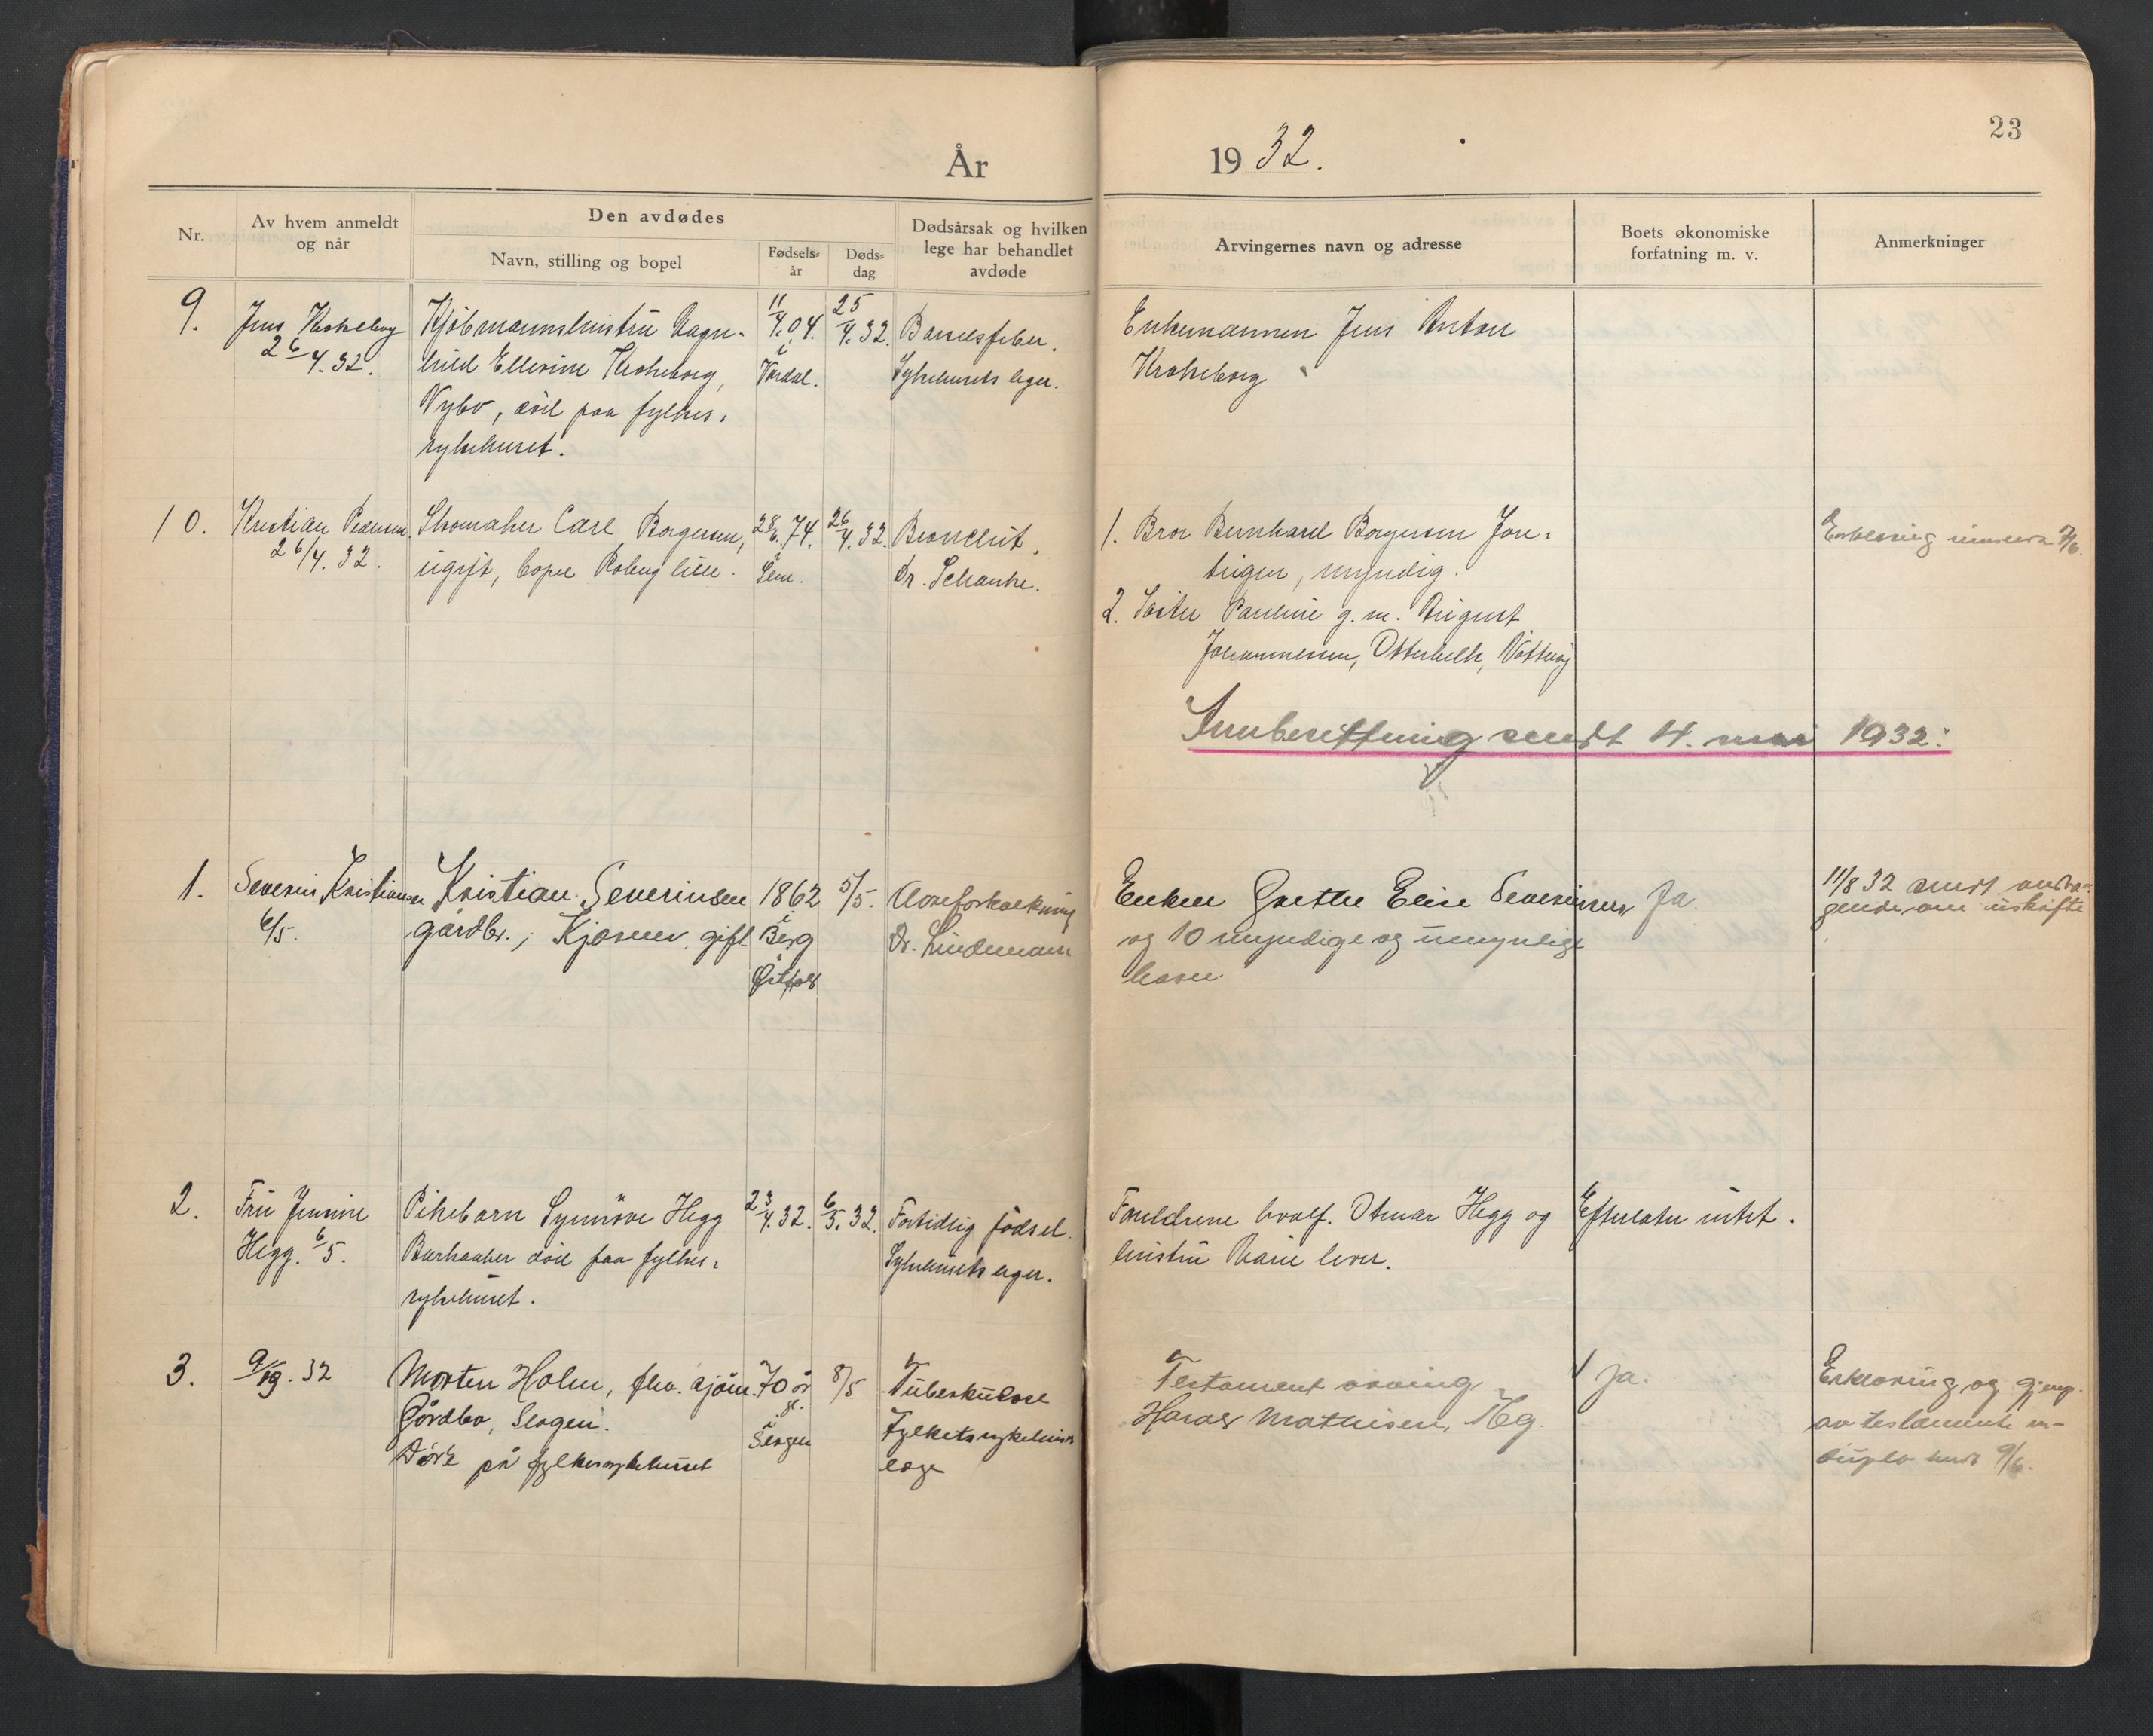 23
År 1932.
Nr.
Av hvem anmeldt
og når
Den avdødes
Navn, stilling og bopel
Fødsels=
år
Døds=
dag
Dødsårsak og hvilken
lege har behandlet
avdøde
Arvingernes navn og adresse
Boets økonomiske
forfatning m. v.
Anmerkninger
9.
Jens Krokeborg
26/4.32.
Kjøbmannshustru Ragn-
hild Ellevine Krokeborg,
Nybo, død paa fylkes-
sykehuset.
11/4.04.
i
25/4.32.
Barselfeber.
Sykehusets leger.
Enkemannen Jens Anton
Krokeborg
10.
Kristian Pedersen.
26/4.32.
Skomaker Carl Borgersen,
ugift, bopel Roberg lille.
28/6.74.
i
Sem.
26/4.32.
Bronchit.
Dr. Schanke.
1. Bror Bernhard Borgersen
myndig.
2. Søster Pauline g.m. August
Johannessen,
Erklæring
Innberettning sendt 4. mai 1932.
1.
Severin Kristiansen
6/5.
Kristian Severinsen
gårdbr., Kjosnes, gift
1862
i
Berg
Østfold
5/5.
Åreforkalkning
Dr. Lindemann
Enken Grethe Elise Severinsen
og 10 myndige og umyndige
barn.
Ja.
11/8 32 sendt andra-
gende om uskifte
2.
Fru Jennine
Hegg. 6/5.
Pikebarn Synnöve Hegg
død paa fylkes-
sykehuset.
23/4.32.
6/5.32.
Fortidlig födsel.
Sykehusets leger.
Foreldrene hvalf. Otmar Hegg og
hustru lever.
Efterlater intet.
3.
32
Morten Holm, fhv. sjöm.
Gårdbo, Slagen.
Död på fylkessykehuset
70 år
gl.
Slagen
8/5
Tuberkulose
Fylketssykehusets
læge
Testament arving
Harald Mathisen, Tbg.
Ja.
Erklæring og gjenp.
av testamente in-
duplo sendt 9/6.